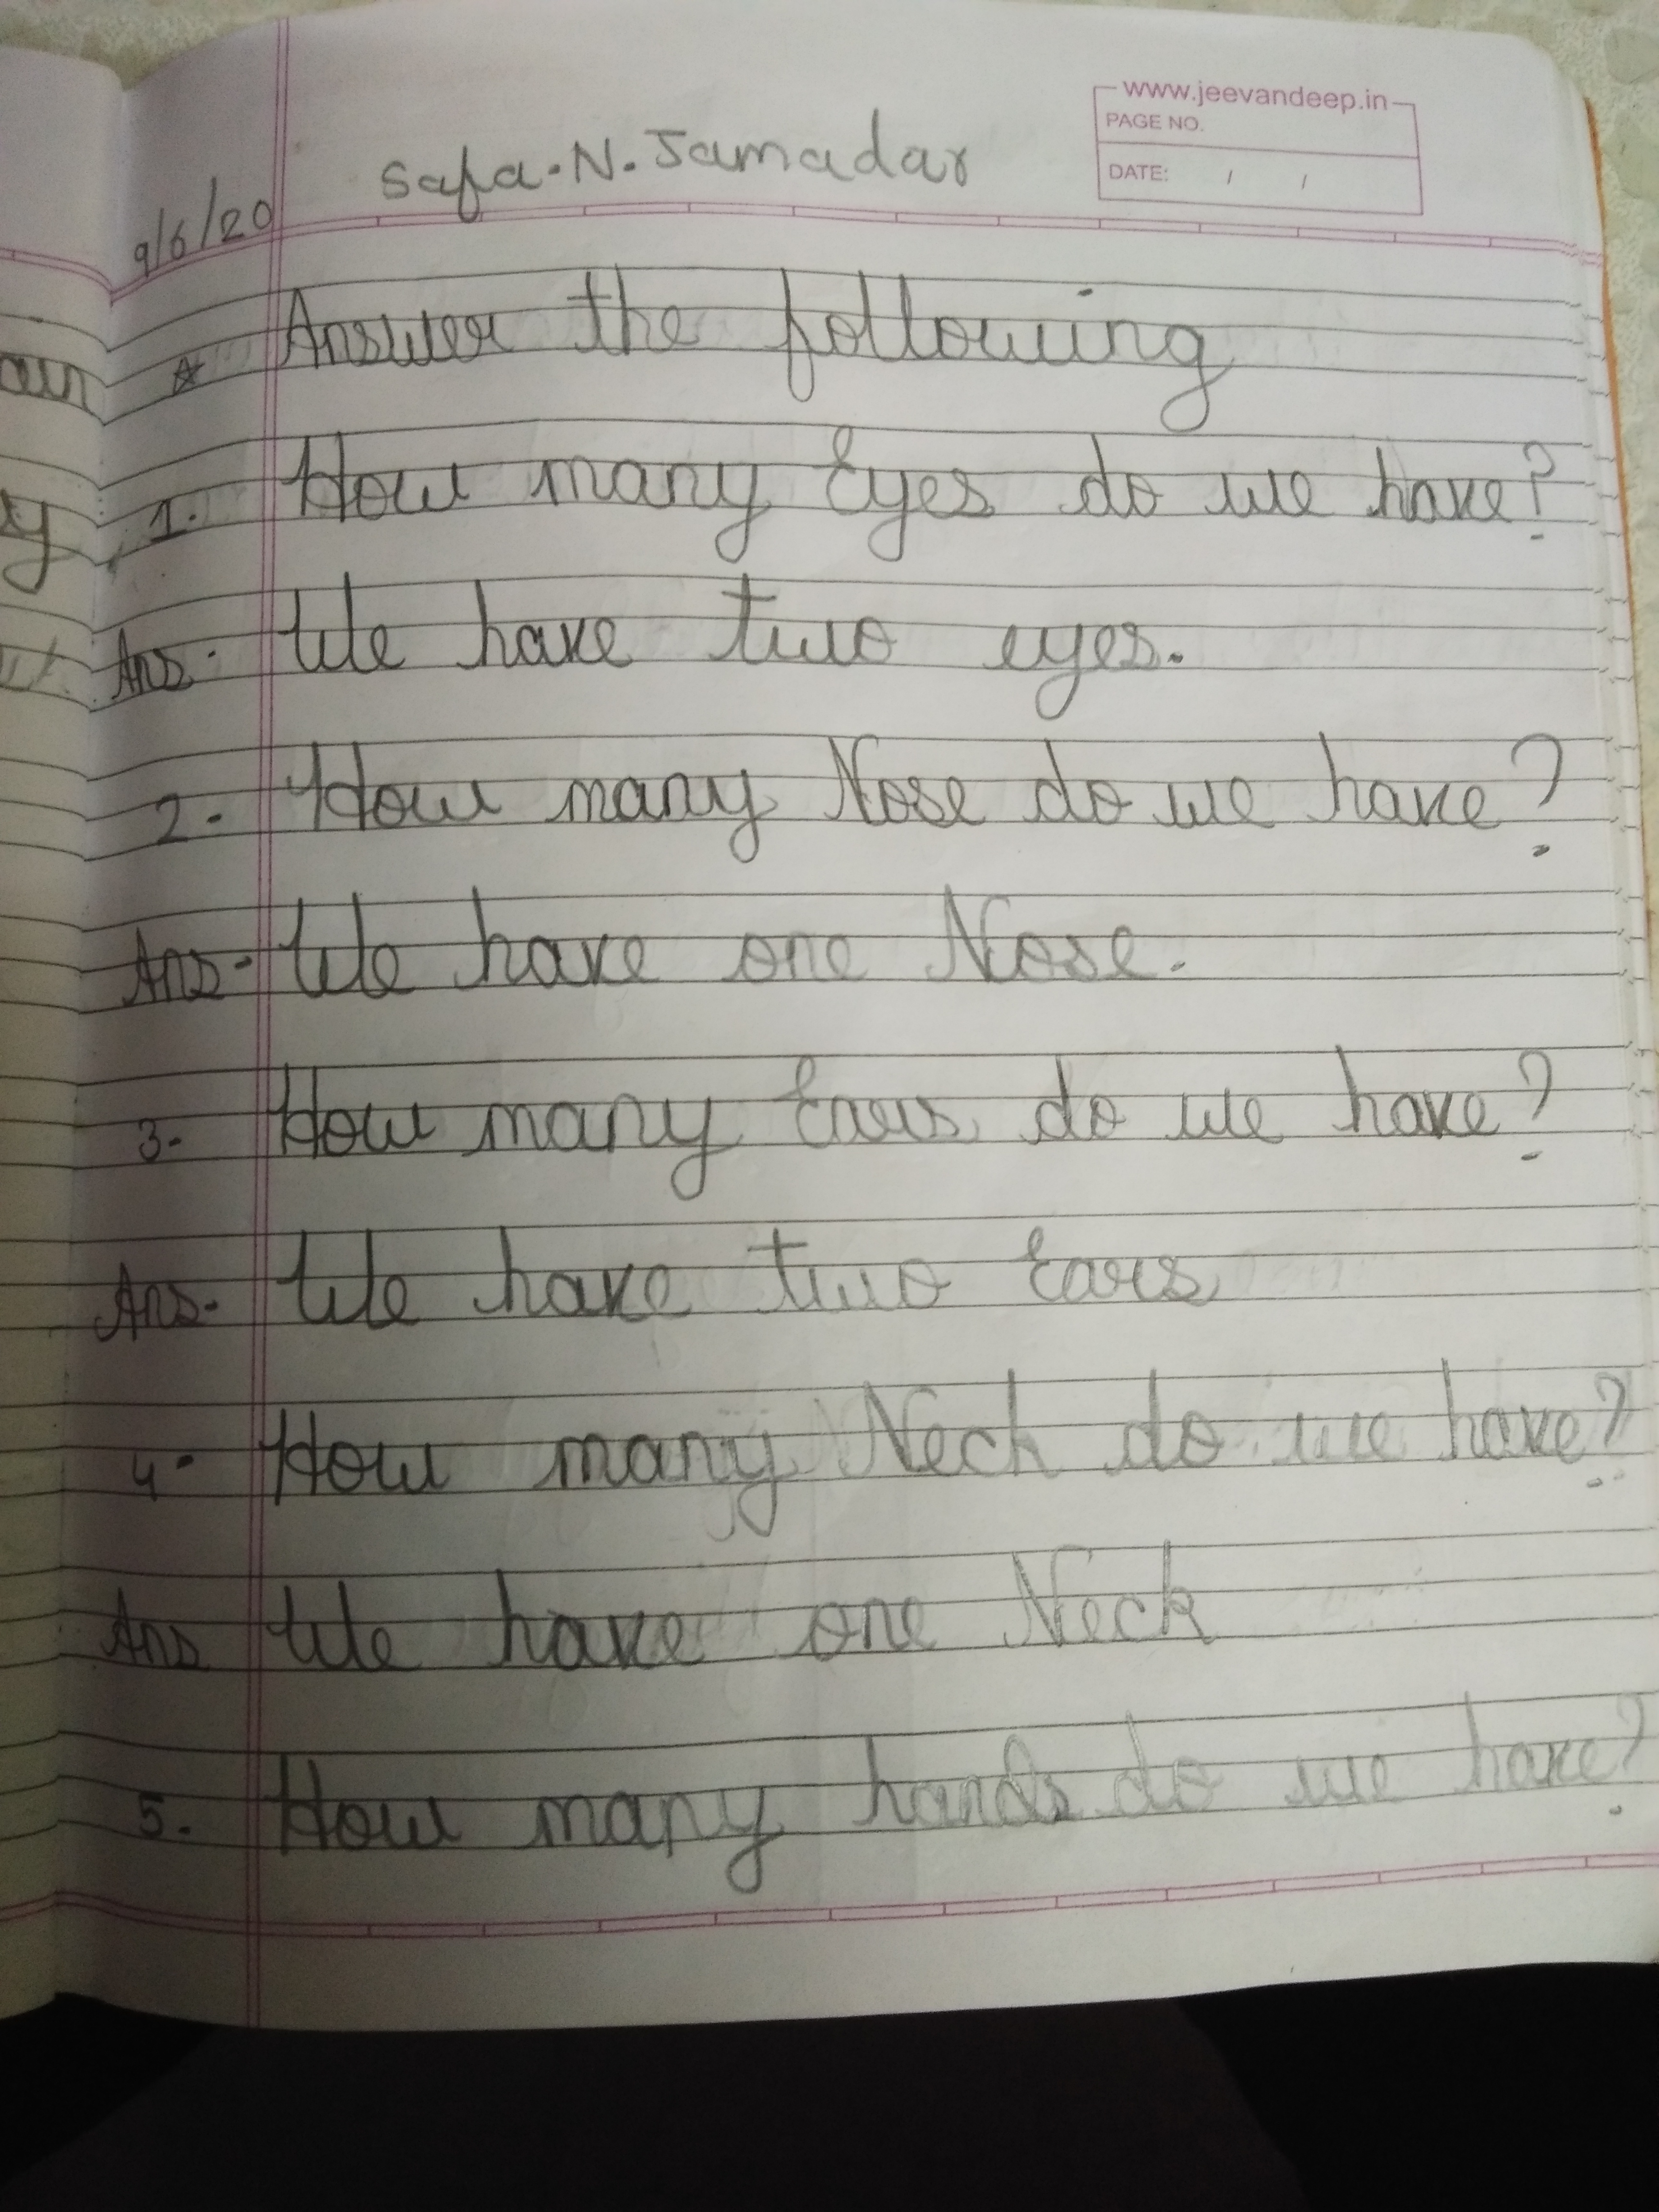 www.jeevandeep.in
PAGE NO.
DATE: / /
Safa.N.Jamadar
9/6/20
☆ Answer the following
1. How many Eyes do we have?
Ans. We have two eyes.
2. How many Nose do we have?
Ans. We have one Nose.
3. How many Ears do we have?
Ans. We have two Ears
4. How many Nech do we have?
Ans We have one Neck
5. How many hands do we have?